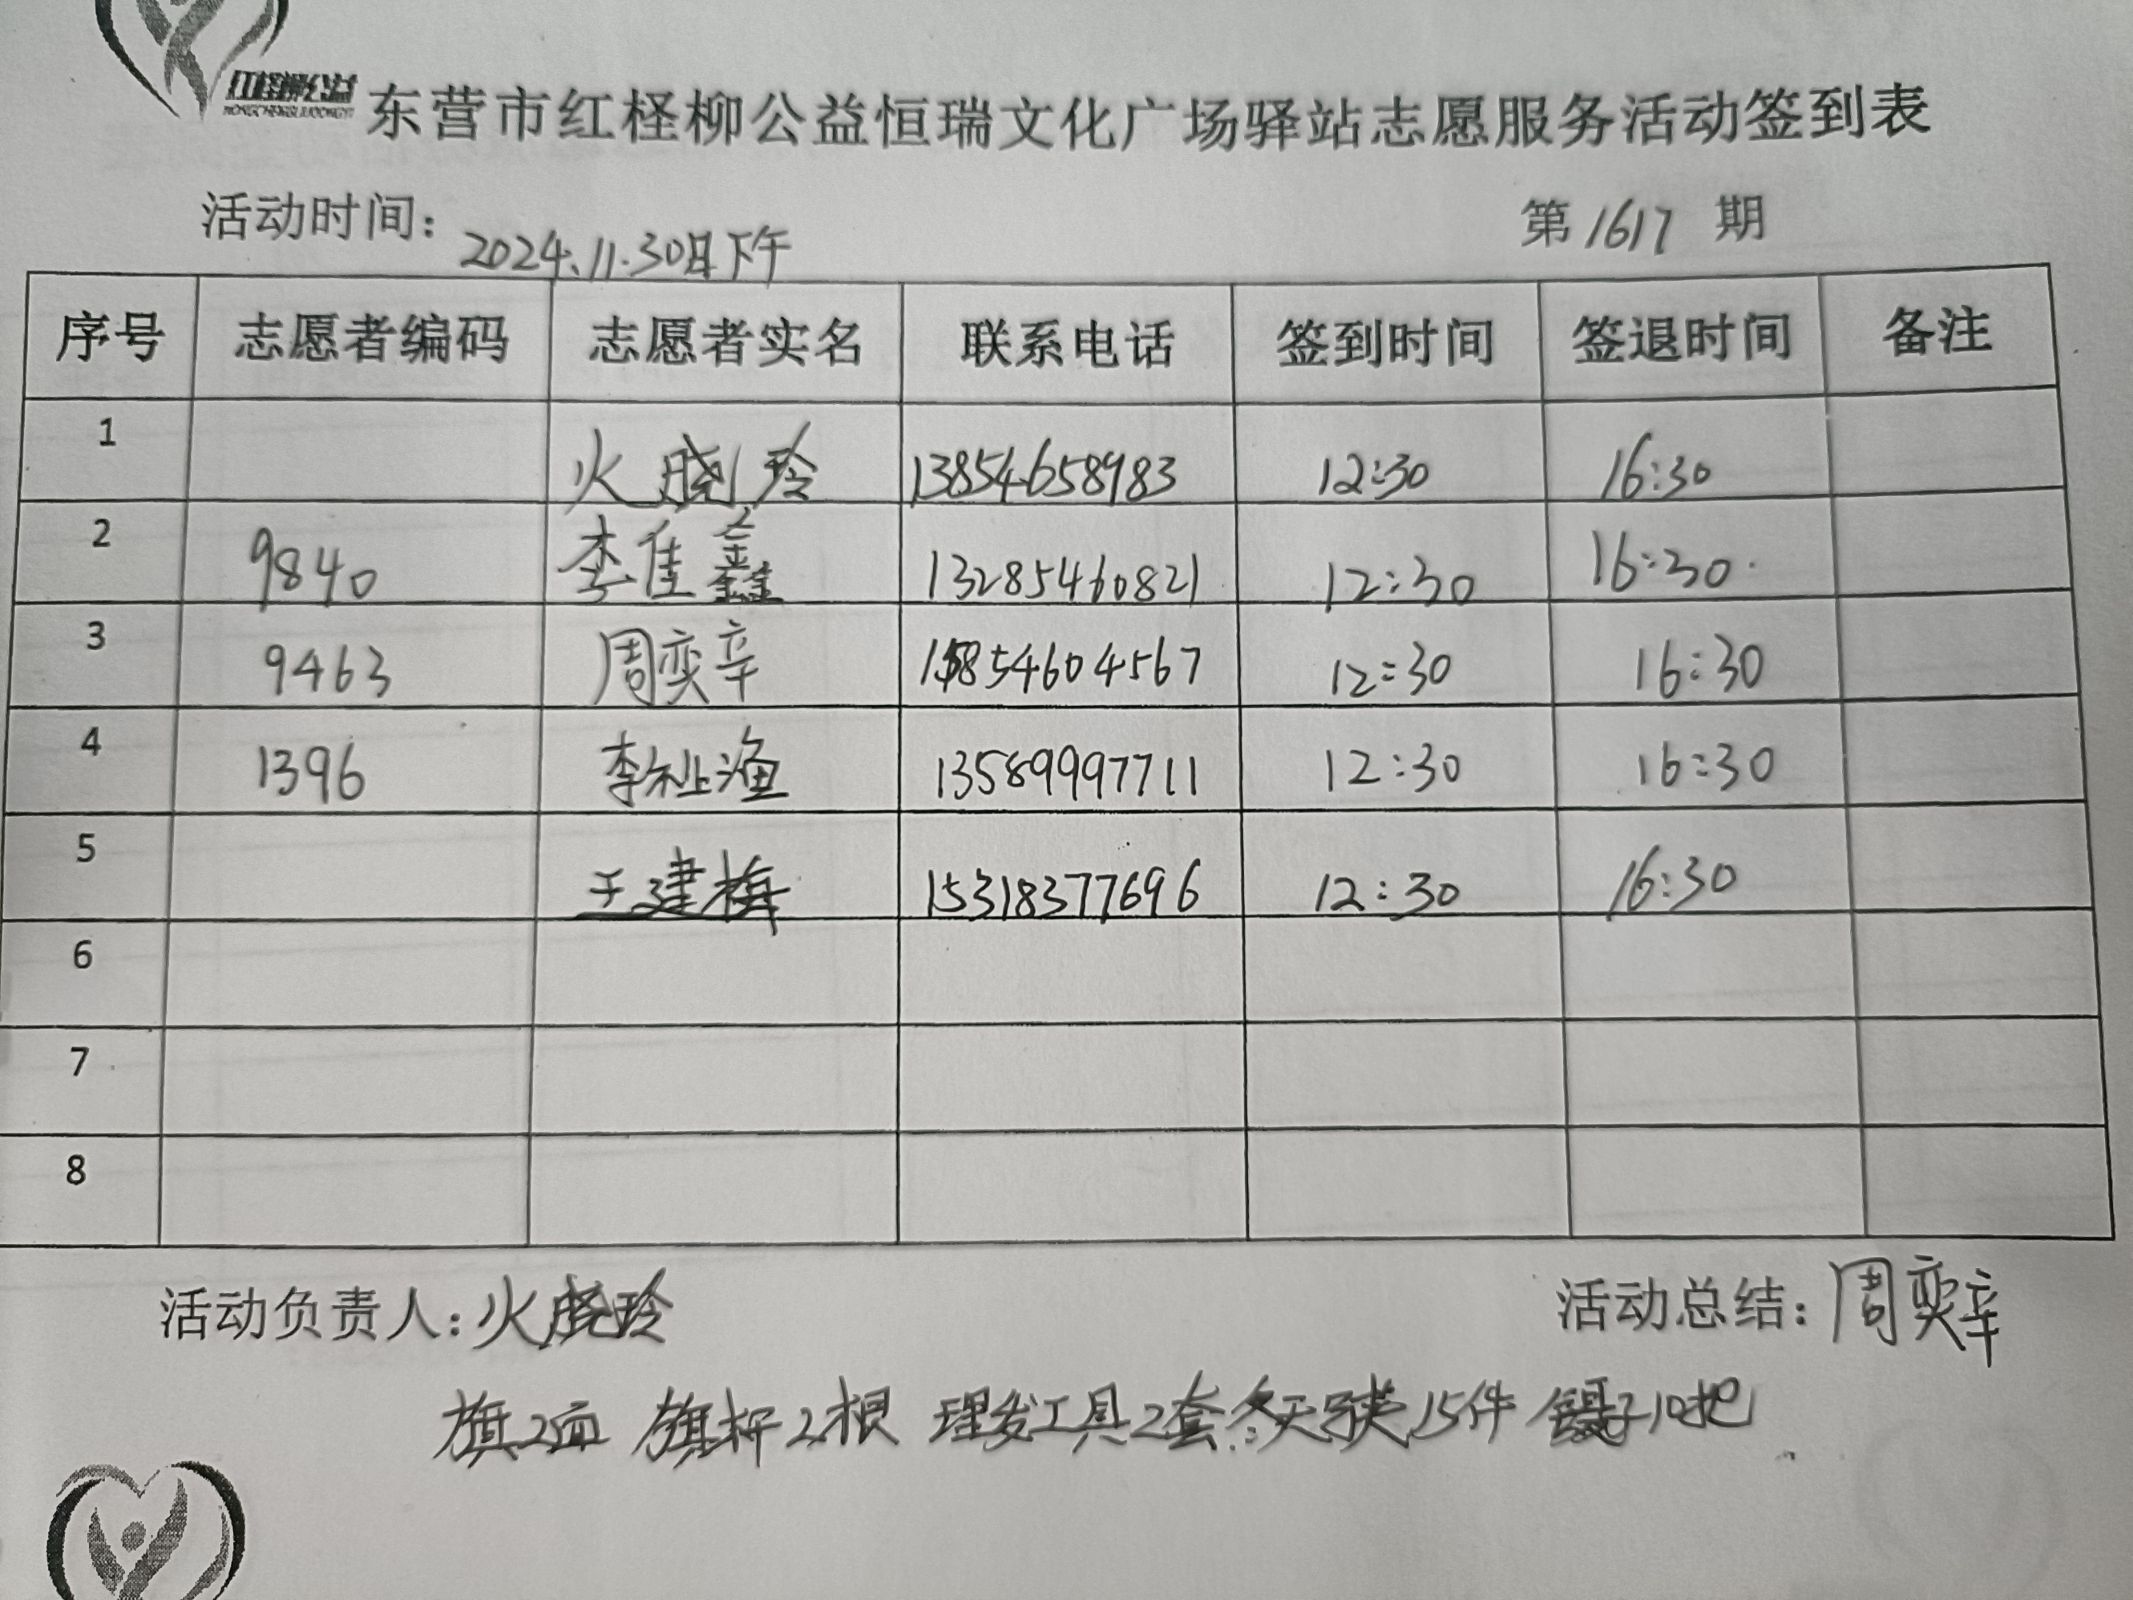 红柽柳公益
东营市红柽柳公益恒瑞文化广场驿站志愿服务活动签到表
活动时间：2024.11.30日下午 第1617期
序号 志愿者编码 志愿者实名 联系电话 签到时间 签退时间 备注
1 火晓玲 13854658983 12:30 16:30
2 9840 李佳鑫 13285460821 12:30 16:30
3 9463 周奕辛 15854604567 12:30 16:30
4 1396 李祉渔 13589997711 12:30 16:30
5 王建梅 15318377696 12:30 16:30
6
7
8
活动负责人：火晓玲 活动总结：周奕辛
旗2面 旗杆2根 理发工具2套 冬天 15件 镊子10把